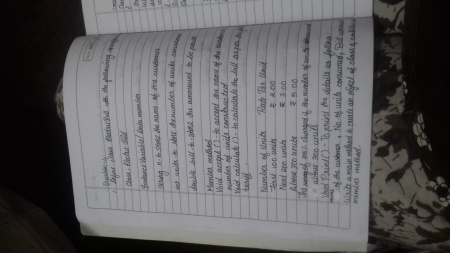 Question 1
Define class ElectricBill with the following specifications
class : ElectricBill
Instance Variables / data member
String n - to store the name of the customer
int units - to store the number of units consumed
double bill - to store the amount to be paid
Member methods
Void accept ( ) - to accept the name of the customer and
number of units consumed
Void calculate ( ) - to calculate the bill as per the following
tariff
Number of Units Rate Per Unit
First 100 units ₹ 2.00
Next 200 units ₹ 3.00
Above 300 units ₹ 5.00
A surcharge of 2.5% charged if the number of units consumed
is above 300 units
Void Print ( ) - To print the details as follows
Name of the customer, No. of units consumed, Bill amount
Write a main method to create an object of class & call the
member method